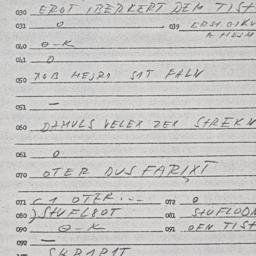 030 EROT IBERKERT DEM TIST
031 O 039 ERSM OIKU
A MEJM
040 O-K
041 O
050 XOB MEJRI SAT FALN
051 —
060 DAMULS VELEX ZEX SHREKN
061 O
070 OTER DUS FARIXT
071 C 1 OTER... 072 O
080 )SHUFLBOT 081 SHUFLOON
090 O-K 091 OFN TIST
092 —
SHRAPAT